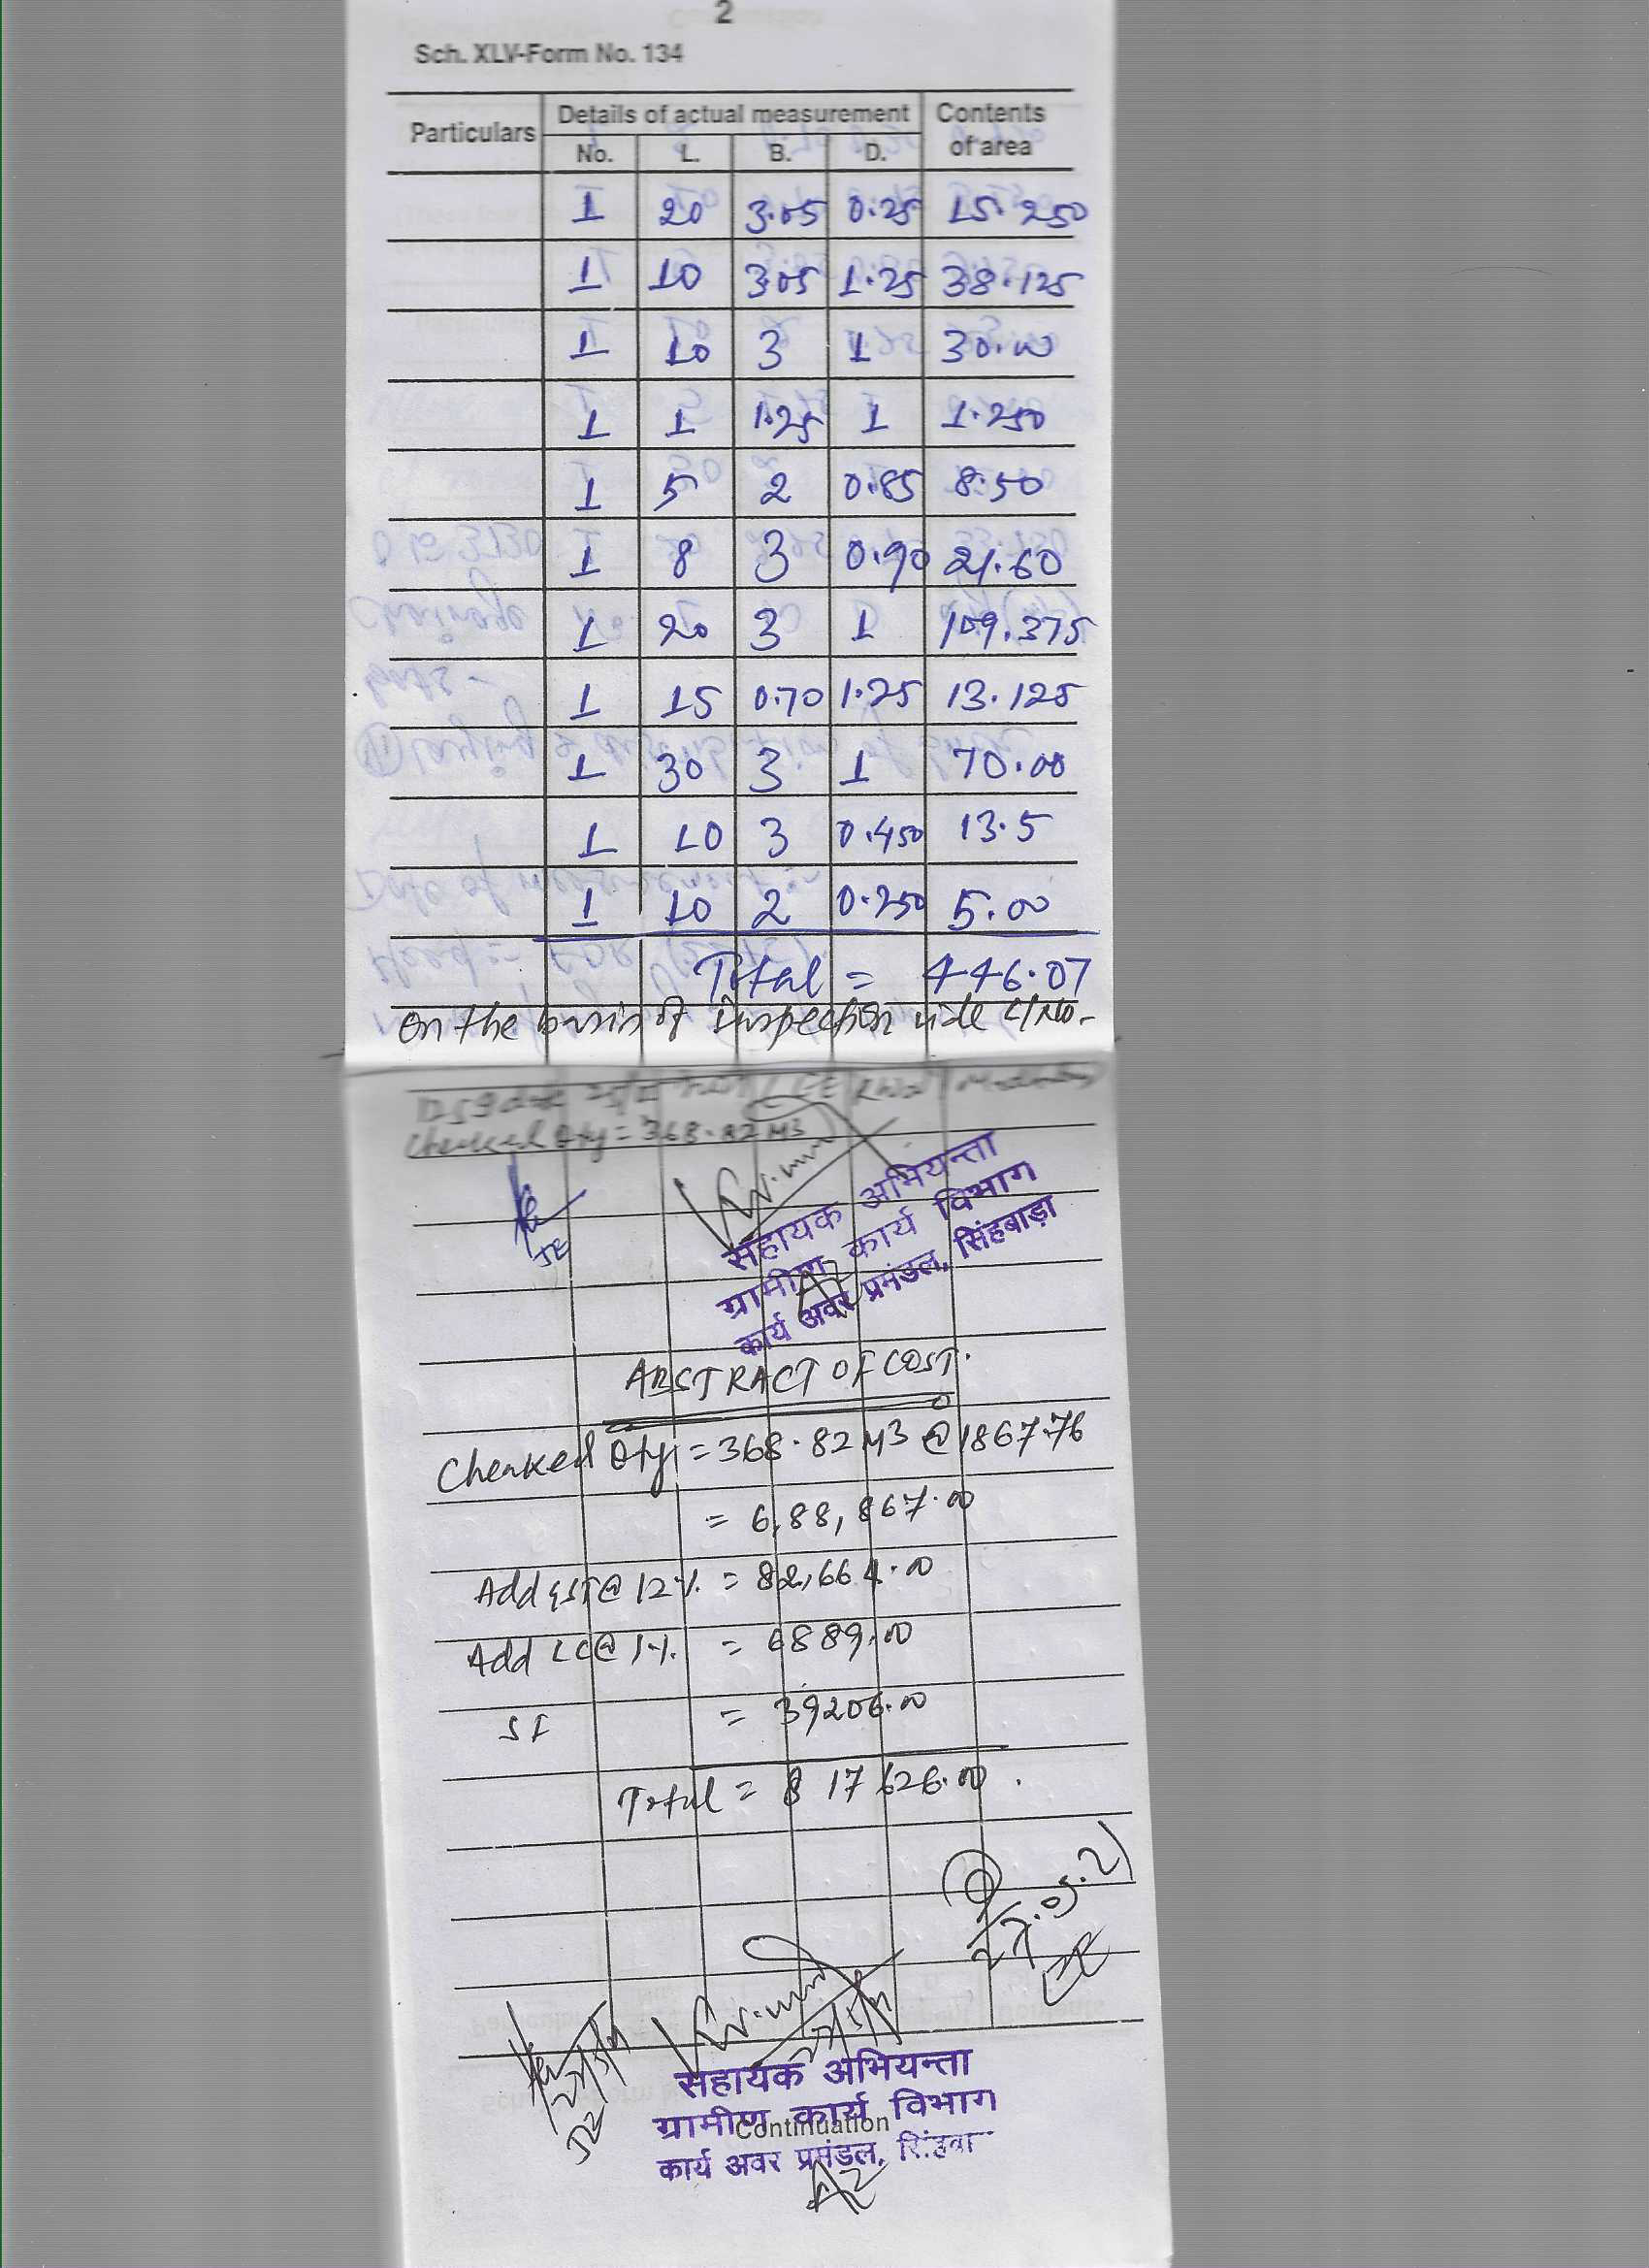 2
Sch. XLV-Form No. 134
Particulars Details of actual measurement Contents of area
No. L. B. D.
1 20 3.05 0.25 15.250
1 10 3.05 1.25 38.125
1 10 3 1 30.00
1 1 1.25 1 1.250
1 5 2 0.85 8.50
1 8 3 0.90 21.60
1 20 3 1 109.375
1 15 0.70 1.25 13.125
1 30 3 1 70.00
1 10 3 0.450 13.5
1 10 2 0.250 5.00
Total = 446.07
On the basis of inspection vide L/No.-
Cheaked Qty = 368.82 M3
JE
सहायक अभियन्ता
ग्रामीण कार्य विभाग
कार्य अवर प्रमंडल, सिंहबाड़ा
ABSTRACT OF COST.
Cheaked Qty = 368.82 M3 @ 1867.76
= 6,88,867.00
Add GST @ 12%. = 82,664.00
Add LC @ 1%. = 6889.00
SI = 39206.00
Total = 817626.00
27.05.21
EE
JE
सहायक अभियन्ता
ग्रामीण कार्य विभाग
Continuation
कार्य अवर प्रमंडल,